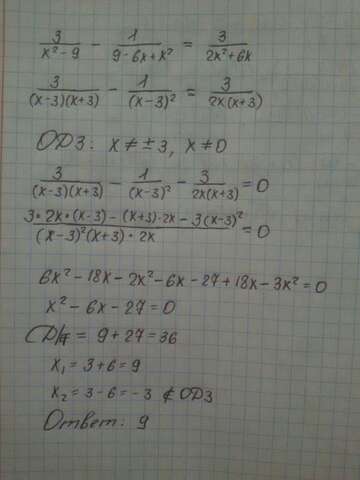 3/(x²-9) - 1/(9-6x+x²) = 3/(2x²+6x)
3/((x-3)(x+3)) - 1/(x-3)² = 3/(2x(x+3))
ОДЗ: x≠±3, x≠0
3/((x-3)(x+3)) - 1/(x-3)² - 3/(2x(x+3)) = 0
(3·2x·(x-3) - (x+3)·2x - 3(x-3)²)/((x-3)²(x+3)·2x) = 0
6x² - 18x - 2x² - 6x - 27 + 18x - 3x² = 0
x² - 6x - 27 = 0
D/4 = 9+27 = 36
x₁ = 3+6 = 9
x₂ = 3-6 = -3 ∉ ОДЗ
Ответ: 9